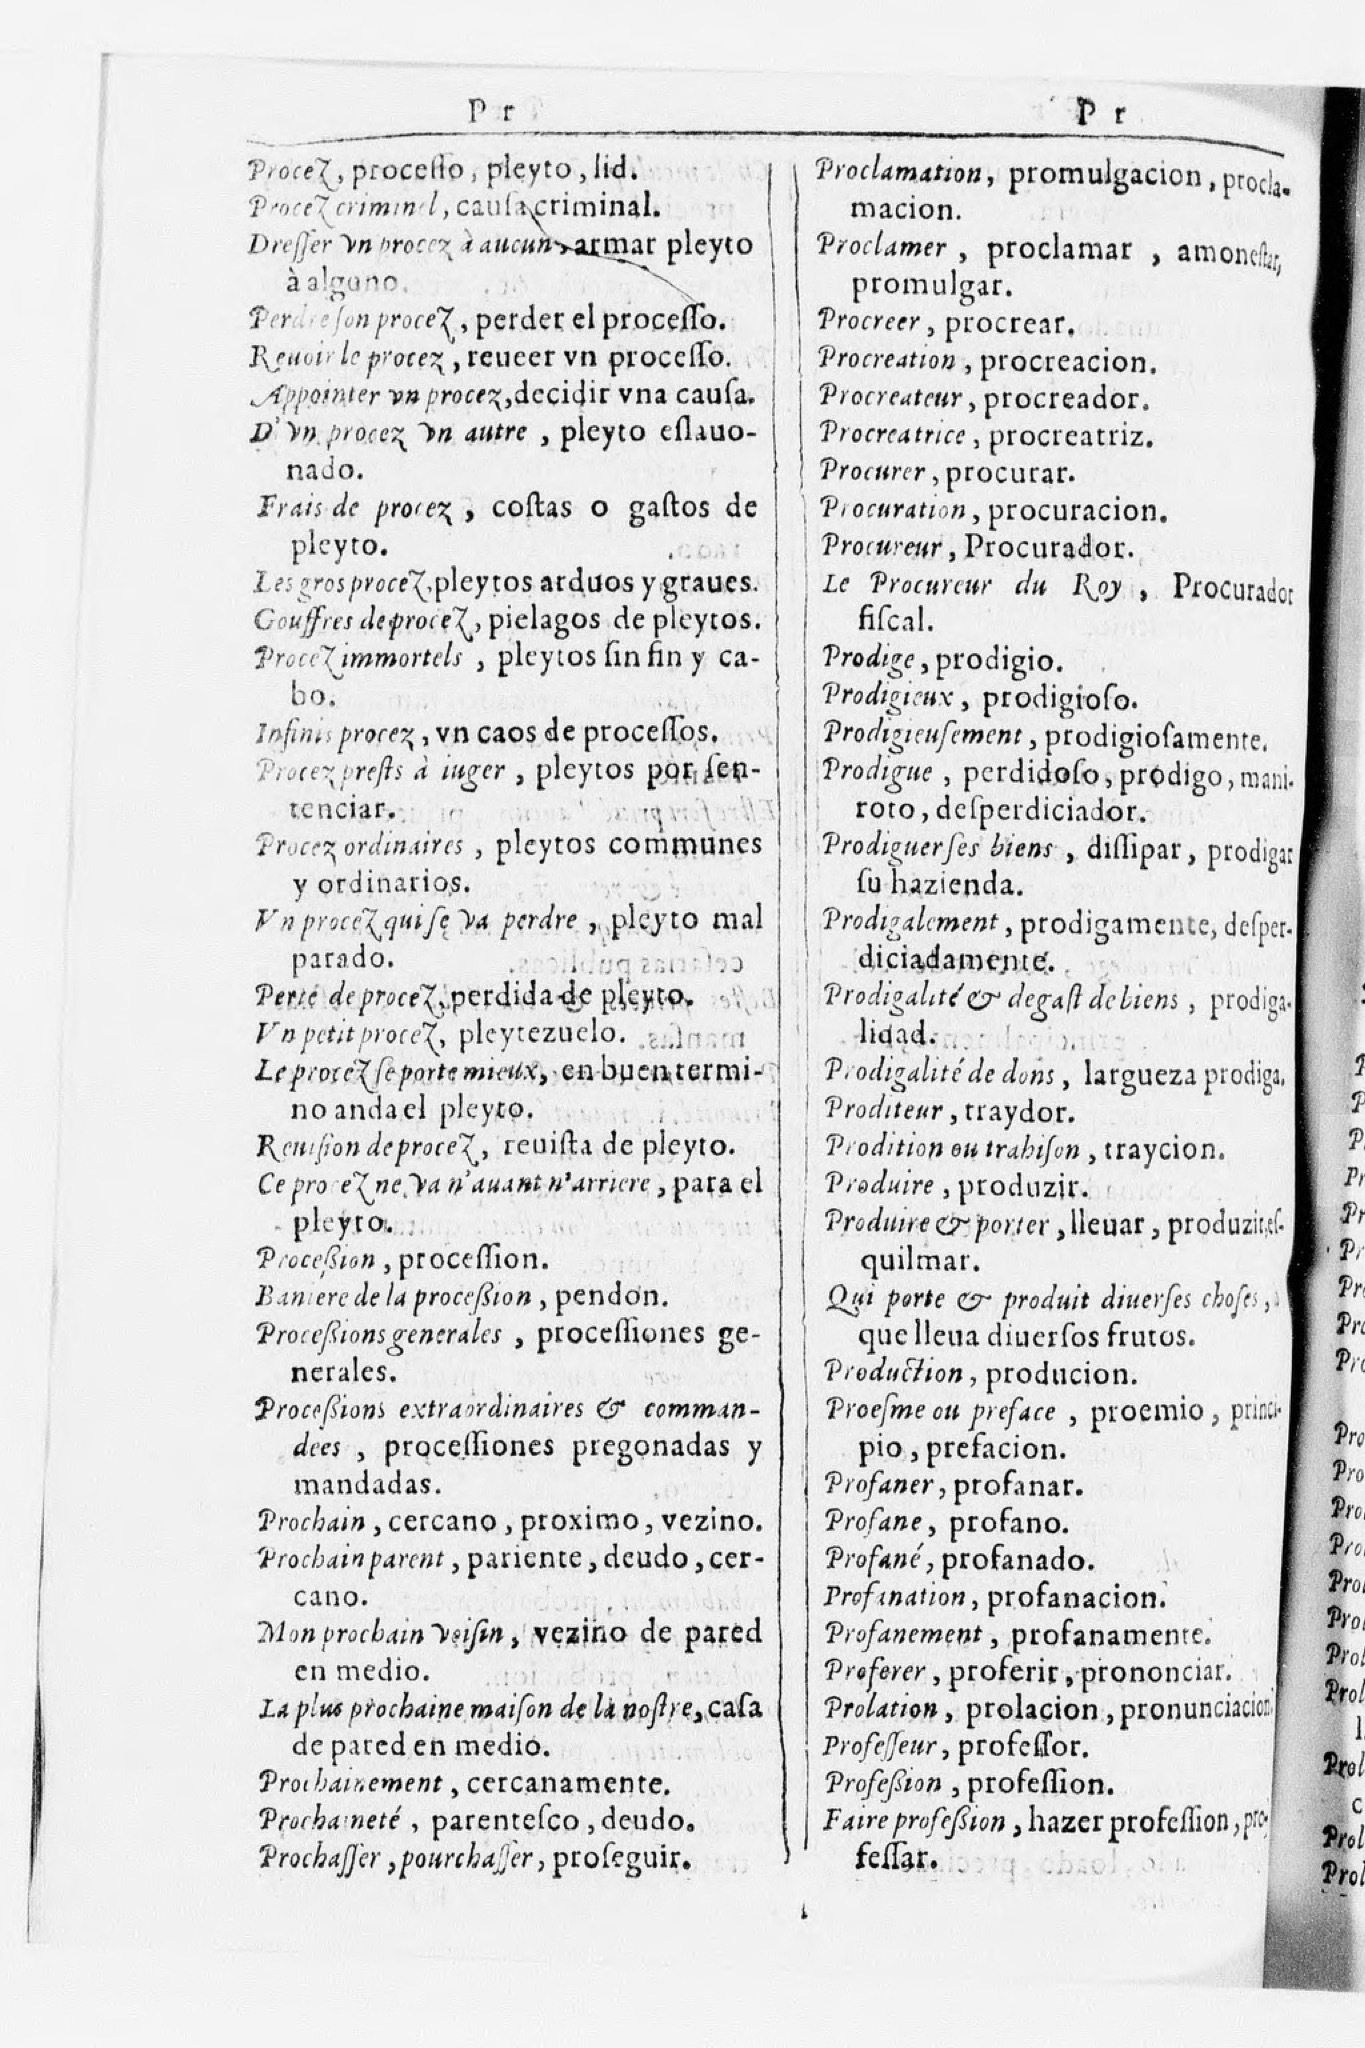 P r
Procez, proceſſo, pleyto, lid.
Procez criminel, cauſa criminal.
Dreſſer vn procez à aucun, armar pleyto
à alguno.
Perdre ſon procez, perder el proceſſo.
Reuoir le procez, reueer vn proceſſo.
Appointer vn procez, decidir vna cauſa.
D'vn procez vn autre, pleyto eſlauo-
nado.
Frais de procez, coſtas o gaſtos de
pleyto.
Les gros procez, pleytos arduos y graues.
Gouffres de procez, pielagos de pleytos.
Procez immortels, pleytos ſin fin y ca-
bo.
Infinis procez, vn caos de proceſſos.
Procez preſts à iuger, pleytos por ſen-
tenciar.
Procez ordinaires, pleytos communes
y ordinarios.
Vn procez qui ſe va perdre, pleyto mal
parado.
Perte de procez, perdida de pleyto.
Vn petit procez, pleytezuelo.
Le procez ſe porte mieux, en buen termi-
no anda el pleyto.
Reuiſion de procez, reuiſta de pleyto.
Ce procez ne va n'auant n'arriere, para el
pleyto.
Proceßion, proceſſion.
Baniere de la proceßion, pendon.
Proceßions generales, proceſſiones ge-
nerales.
Proceßions extraordinaires & comman-
dees, proceſſiones pregonadas y
mandadas.
Prochain, cercano, proximo, vezino.
Prochain parent, pariente, deudo, cer-
cano.
Mon prochain voiſin, vezino de pared
en medio.
La plus prochaine maiſon de la noſtre, caſa
de pared en medio.
Prochainement, cercanamente.
Prochaineté, parenteſco, deudo.
Prochaſſer, pourchaſſer, proſeguir.
P r
Proclamation, promulgacion, procla-
macion.
Proclamer, proclamar, amoneſtar,
promulgar.
Procreer, procrear.
Procreation, procreacion.
Procreateur, procreador.
Procreatrice, procreatriz.
Procurer, procurar.
Procuration, procuracion.
Procureur, Procurador.
Le Procureur du Roy, Procurador
fiſcal.
Prodige, prodigio.
Prodigieux, prodigioſo.
Prodigieuſement, prodigioſamente.
Prodigue, perdidoſo, prodigo, mani-
roto, deſperdiciador.
Prodiguer ſes biens, diſſipar, prodigar
ſu hazienda.
Prodigalement, prodigamente, deſper-
diciadamente.
Prodigalité & degaſt de biens, prodiga-
lidad.
Prodigalité de dons, largueza prodiga.
Proditeur, traydor.
Prodition ou trahiſon, traycion.
Produire, produzir.
Produire & porter, lleuar, produzir, eſ-
quilmar.
Qui porte & produit diuerſes choſes,
que lleua diuerſos frutos.
Production, producion.
Proeſme ou preface, proemio, princi-
pio, prefacion.
Profaner, profanar.
Profane, profano.
Profané, profanado.
Profanation, profanacion.
Profanement, profanamente.
Proferer, proferir, prononciar.
Prolation, prolacion, pronunciacion
Profeſſeur, profeſſor.
Profeßion, profeſſion.
Faire profeßion, hazer profeſſion, pro-
feſſar.